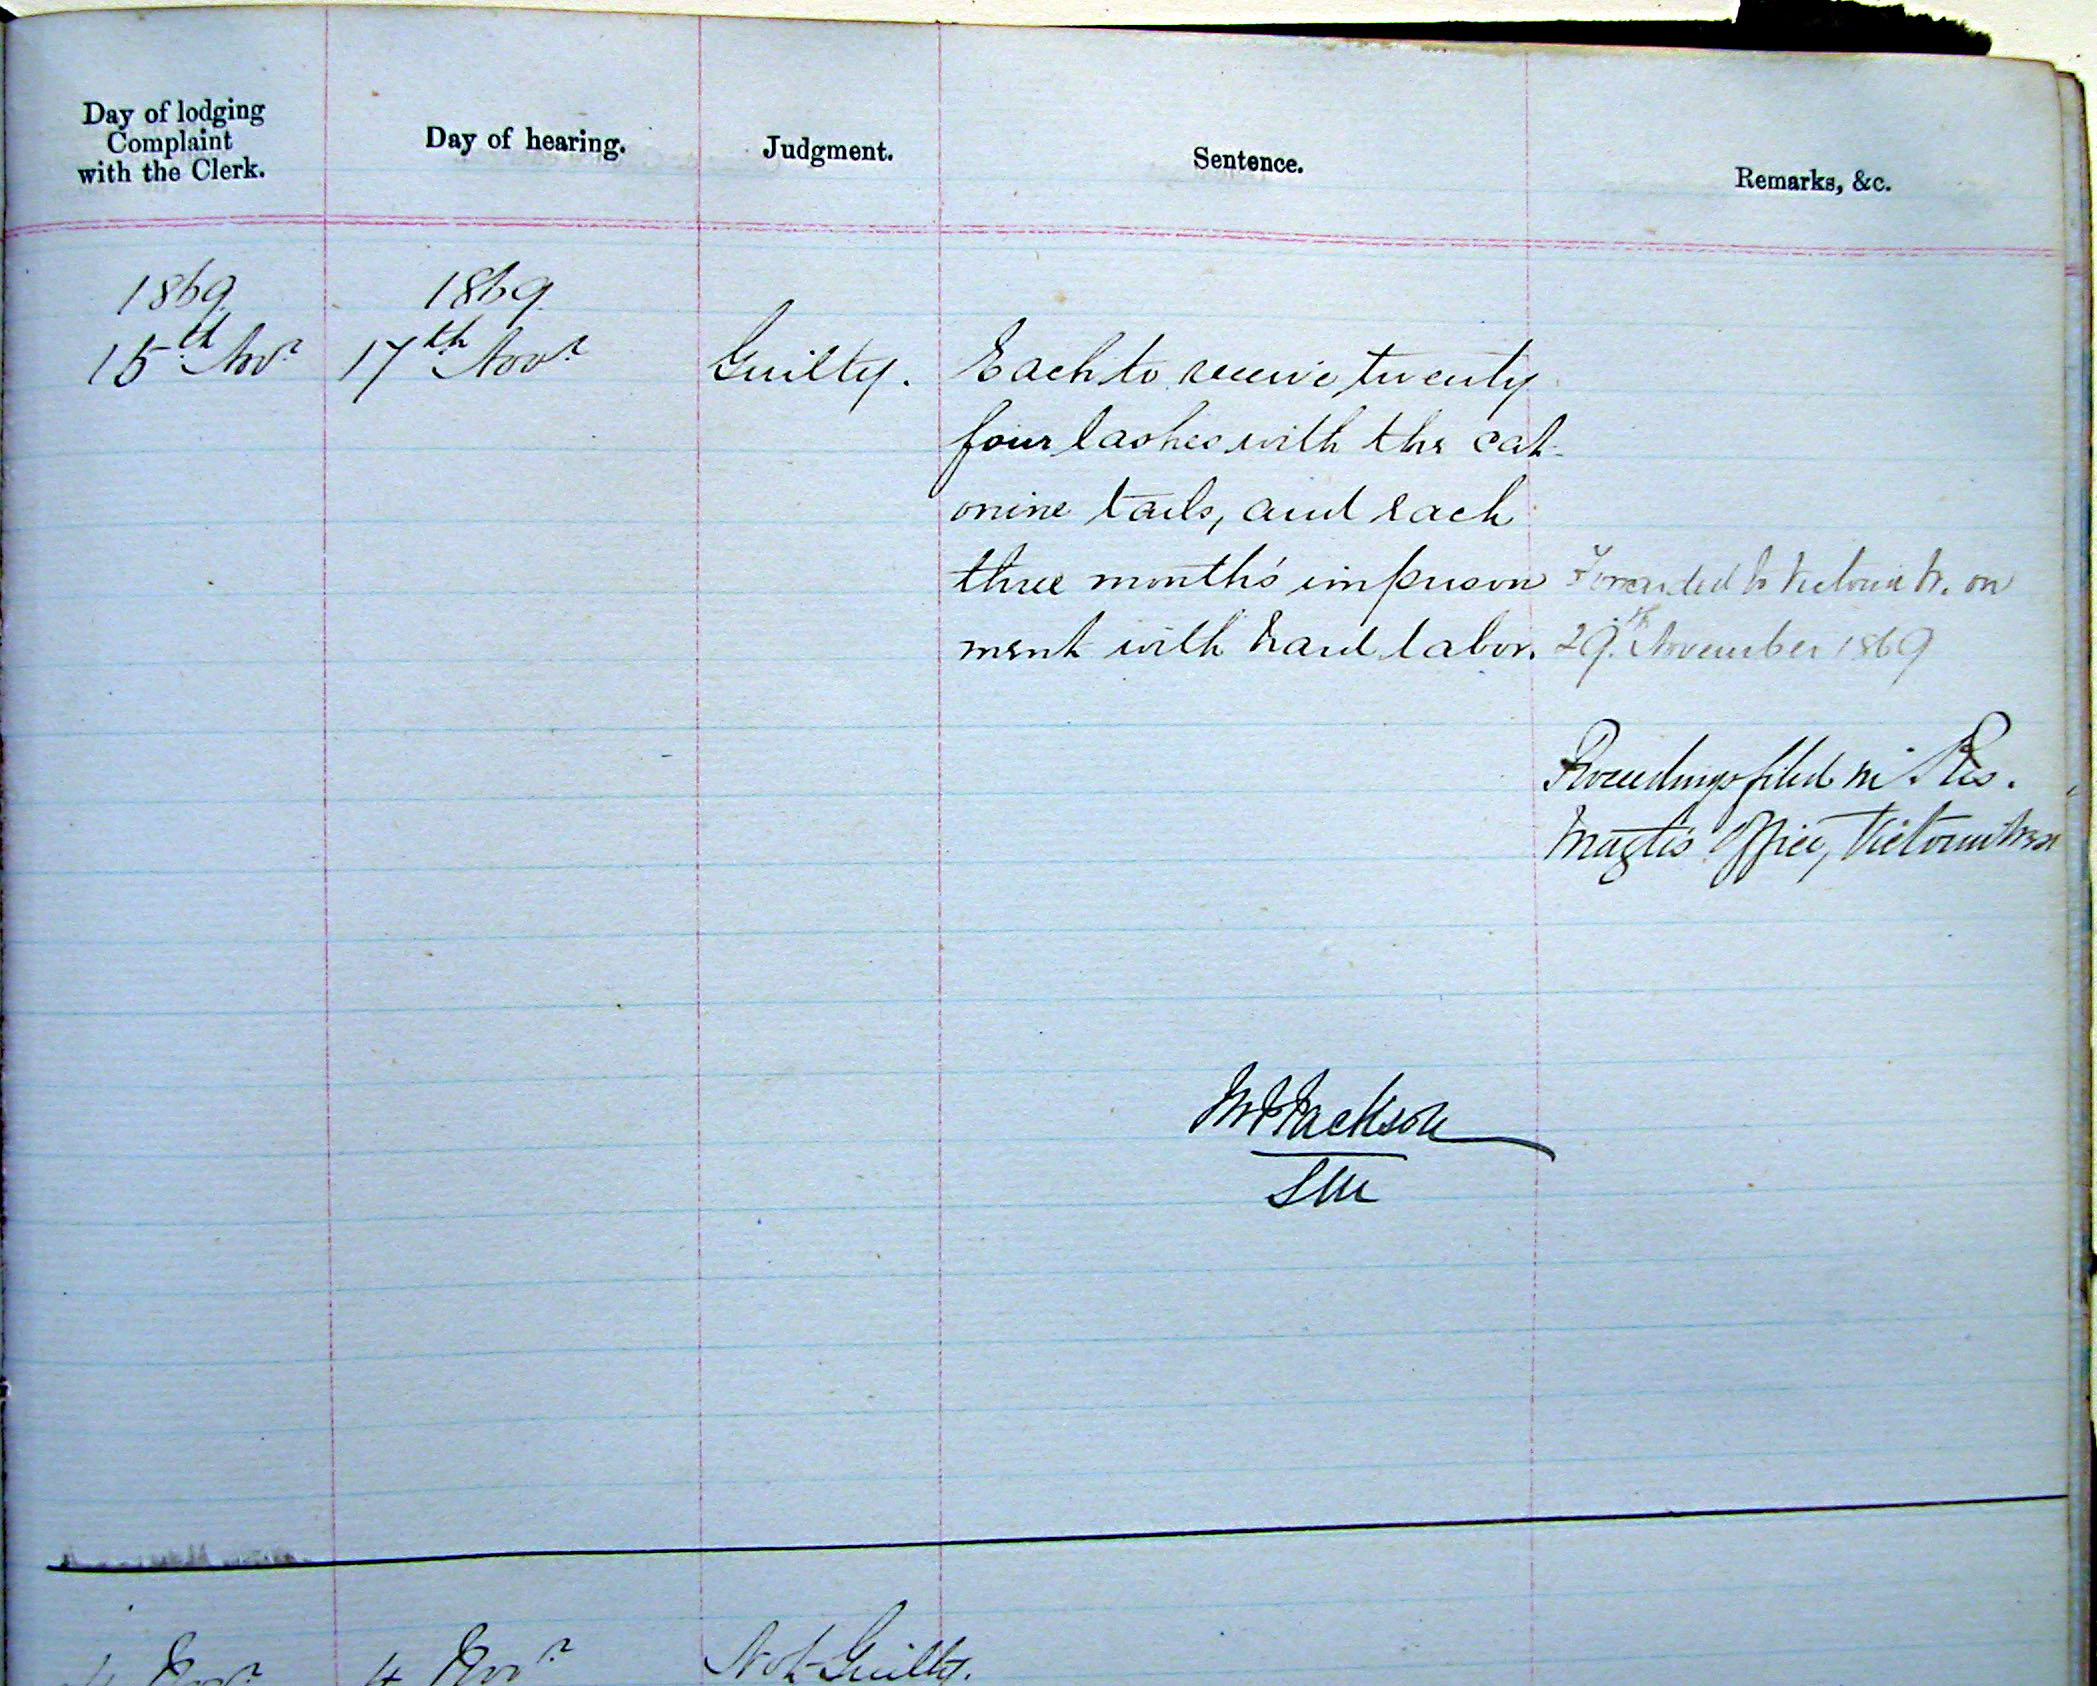 Day of lodging
Complaint
with the Clerk.
Day of hearing.
Judgment.
Sentence.
Remarks, &c.
1869
15th Novr
1869
17th Novr
Guilty.
Each to receive twenty
four lashes with the cat-
onine tails, and each
three month's imprison
ment with hard labor.
Forwarded to Victoria W. on
29th November 1869
Proceedings filed in Res.
Magt's Office, Victoria West
Jackson
SM
4 Novr
Not Guilty.